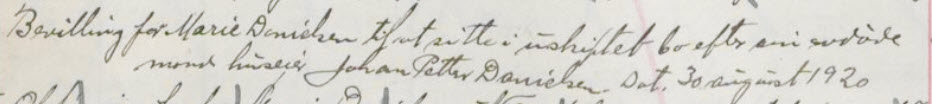 Bevilling for Marie Danielsen til at sitte i uskiftet bo efter sin avdöde
mand huseier Johan Petter Danielsen. Dat. 30 august 1920